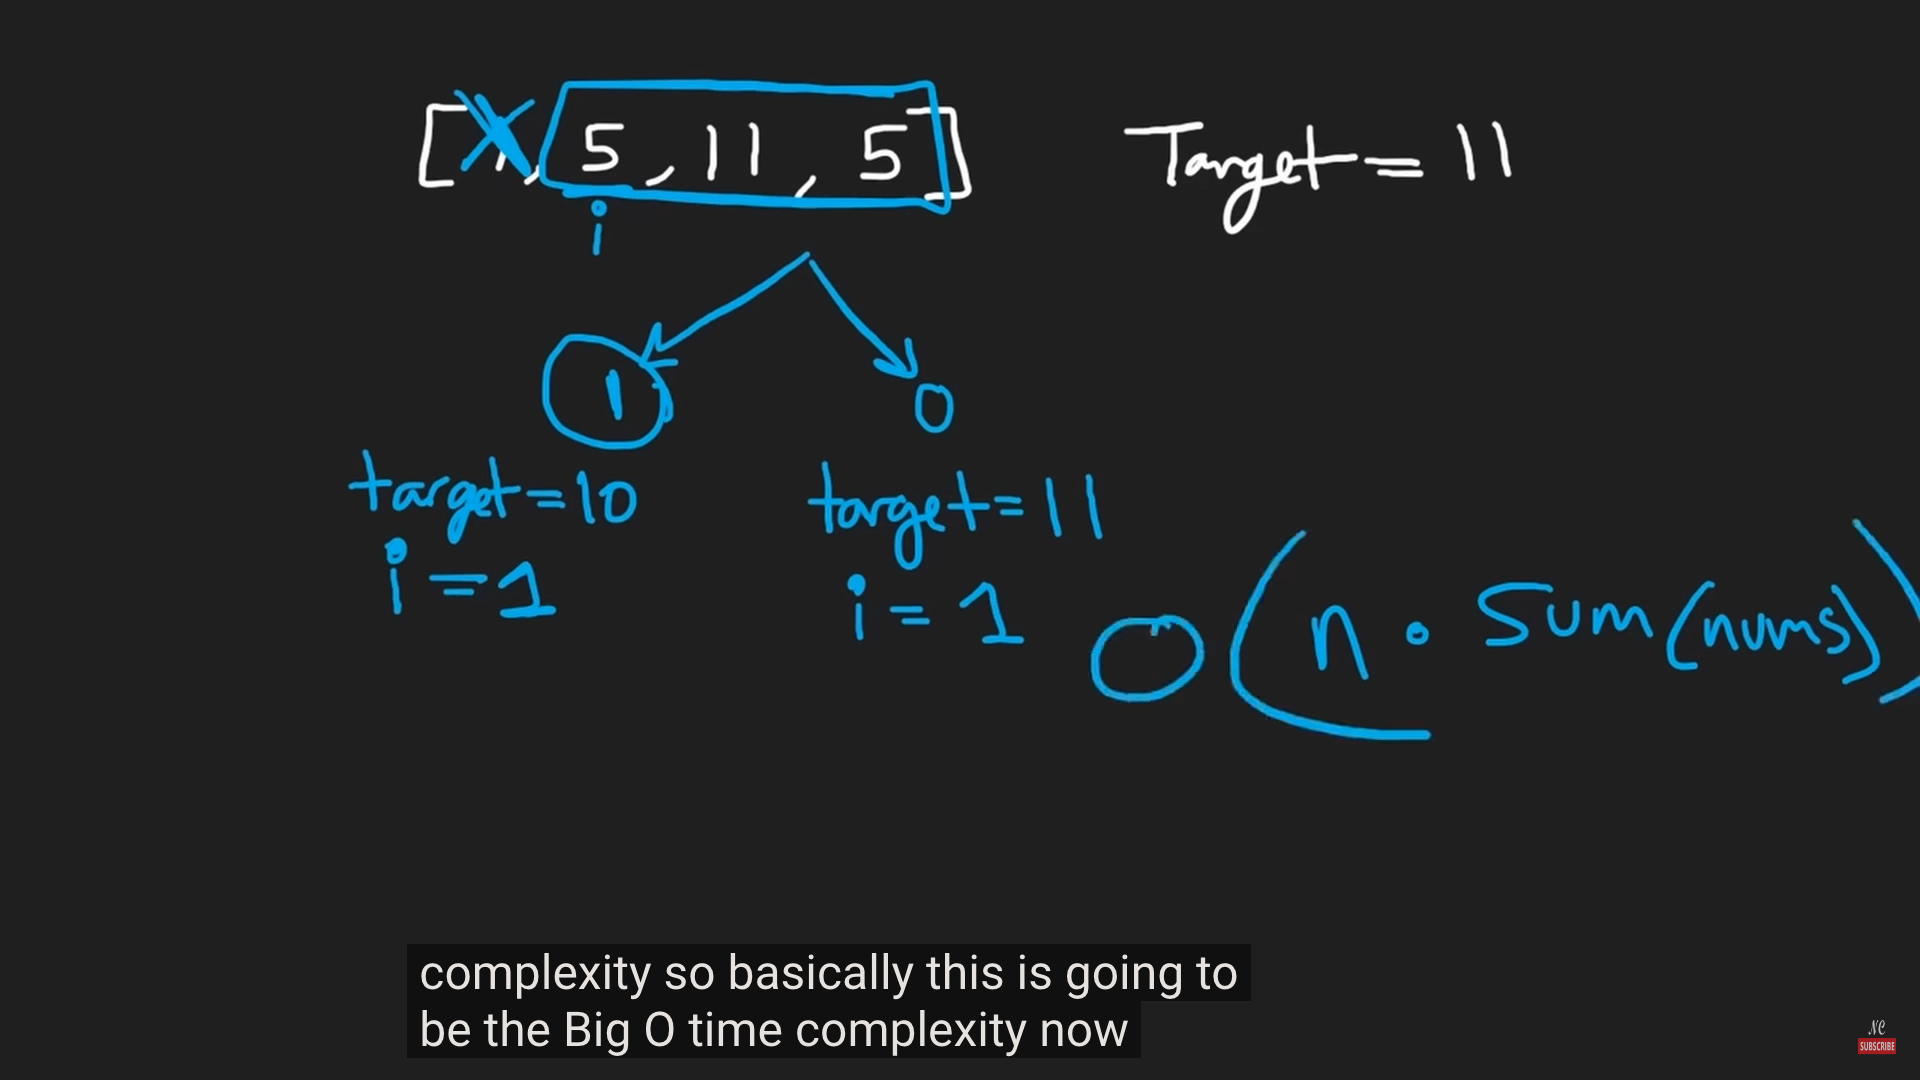 [1, 5, 11, 5] Target = 11
i
1 0
target = 10 target = 11
i = 1 i = 1
O(n · sum(nums))
complexity so basically this is going to
be the Big O time complexity now
NC
SUBSCRIBE